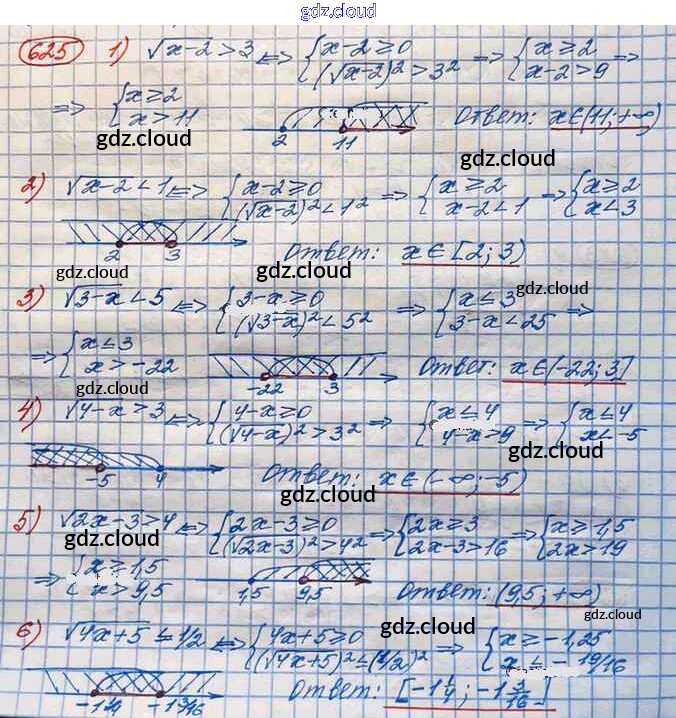 gdz.cloud
gdz.cloud
625 1) √x-2 > 3 <=> {x-2 ≥ 0 (√x-2)² > 3² => {x ≥ 2 x-2 > 9 =>
=> {x ≥ 2 x > 11 2 11 Ответ: x∈(11; +∞)
gdz.cloud gdz.cloud
2) √x-2 < 1 <=> {x-2 ≥ 0 (√x-2)² < 1² => {x ≥ 2 x-2 < 1 => {x ≥ 2 x < 3
2 3 Ответ: x∈[2; 3)
gdz.cloud gdz.cloud gdz.cloud
3) √3-x < 5 <=> {3-x ≥ 0 (√3-x)² < 5² => {x ≤ 3 3-x < 25 =>
gdz.cloud
=> {x ≤ 3 x > -22 -22 3 Ответ: x∈(-22; 3]
gdz.cloud
4) √4-x > 3 <=> {4-x ≥ 0 (√4-x)² > 3² => {x ≤ 4 4-x > 9 => {x ≤ 4 x < -5
gdz.cloud
-5 4 Ответ: x∈(-∞; -5)
gdz.cloud
5) √2x-3 > 4 <=> {2x-3 ≥ 0 (√2x-3)² > 4² => {2x ≥ 3 2x-3 > 16 => {x ≥ 1,5 2x > 19
gdz.cloud gdz.cloud
=> {x ≥ 1,5 x > 9,5 1,5 9,5 Ответ: (9,5; +∞)
gdz.cloud
6) √4x+5 ≤ 1/2 <=> {4x+5 ≥ 0 (√4x+5)² ≤ (1/2)² => {x ≥ -1,25 x ≤ -19/16
gdz.cloud
-1 1/4 -1 3/16 Ответ: [-1 1/4; -1 3/16]
gdz.cloud